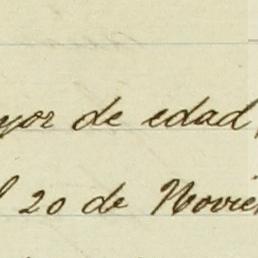 yor de edad
l 20 de Novie